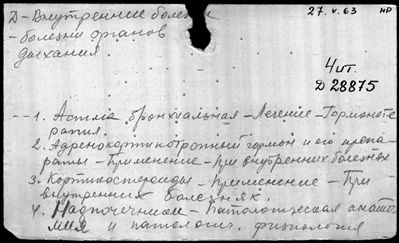 Д-Внутренние болезни
27.V.63 НР
-болезни органов
дыхания.
4 ит.
Д 28875
1. Астма бронхиальная-Лечение-Гормоноте
рапия.
2. Адренокортикотропный гормон и его препа-
раты-Применение-При внутренних болезнях
3. Кортикостероиды-Применение-При
внутренних болезнях.
4. Надпочечники-Патологическая анато-
мия и патологич. физиология